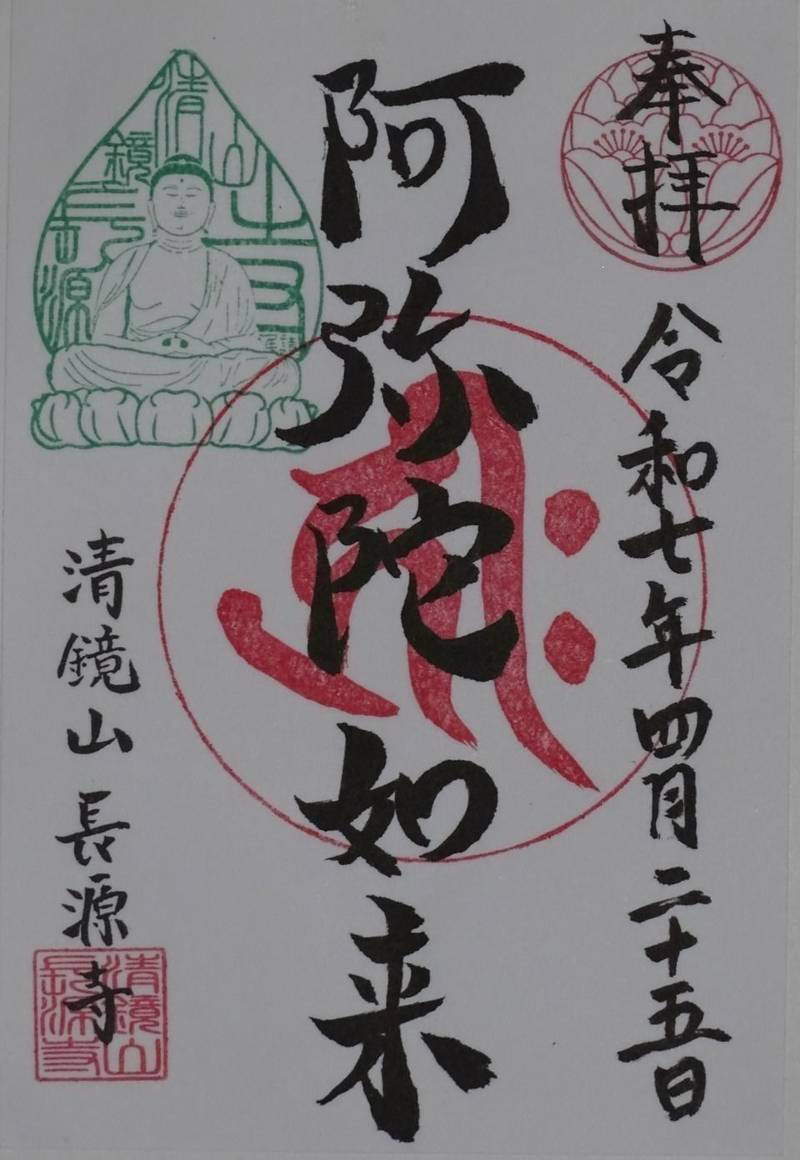 奉拝
令和七年四月二十五日
阿弥陀如来
清鏡山長源寺
清鏡山
長源寺
清鏡山
長源寺